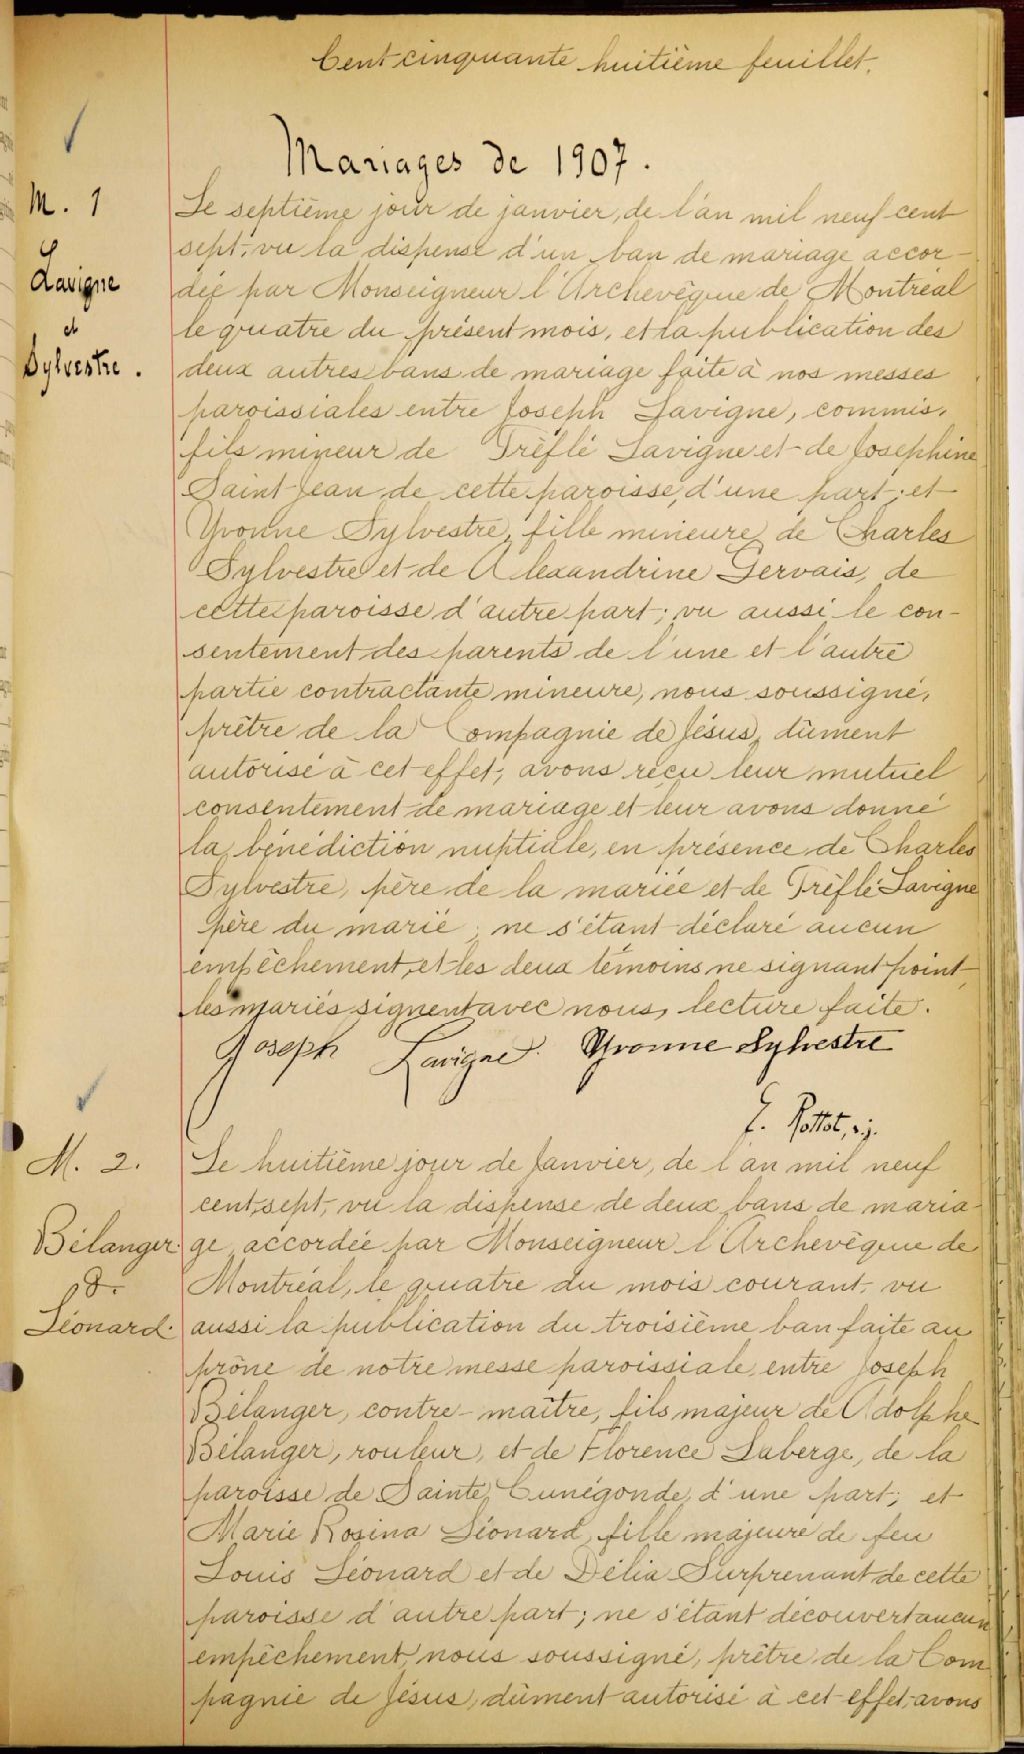 Cent cinquante huitième feuillet.
Mariages de 1907.
M. 1
Lavigne
et
Sylvestre.
Le septième jour de janvier, de l'an mil neuf cent
sept, vu la dispense d'un ban de mariage accor-
dée par Monseigneur l'Archevêque de Montréal
le quatre du présent mois, et la publication des
deux autres bans de mariage faite à nos messes
paroissiales entre Joseph Lavigne, commis,
fils mineur de Trèflé Lavigne et de Josephine
Saint-Jean de cette paroisse, d'une part; et
Yvonne Sylvestre, fille mineure de Charles
Sylvestre et de Alexandrine Gervais, de
cette paroisse d'autre part; vu aussi le con-
sentement des parents de l'une et l'autre
partie contractante mineure, nous soussigné,
prêtre de la Compagnie de Jésus, dûment
autorisé à cet effet, avons reçu leur mutuel
consentement de mariage et leur avons donné
la bénédiction nuptiale, en présence de Charles
Sylvestre, père de la mariée et de Trèflé Lavigne
père du marié; ne s'étant déclaré aucun
empêchement, et les deux témoins ne signant point,
les mariés signent avec nous, lecture faite.
Joseph Lavigne. Yvonne Sylvestre
E. Rottot, s.j.
M. 2.
Bélanger
&
Léonard.
Le huitième jour de Janvier, de l'an mil neuf
cent sept, vu la dispense de deux bans de maria-
ge accordée par Monseigneur l'Archevêque de
Montréal, le quatre du mois courant, vu
aussi la publication du troisième ban faite au
prône de notre messe paroissiale, entre Joseph
Bélanger, contre-maître, fils majeur de Adolphe
Bélanger, rouleur, et de Florence Laberge, de la
paroisse de Sainte Cunégonde, d'une part; et
Marie Rosina Léonard, fille majeure de feu
Louis Léonard et de Délia Surprenant de cette
paroisse d'autre part; ne s'étant découvert aucun
empêchement, nous soussigné, prêtre de la Com
pagnie de Jésus, dûment autorisé à cet effet, avons